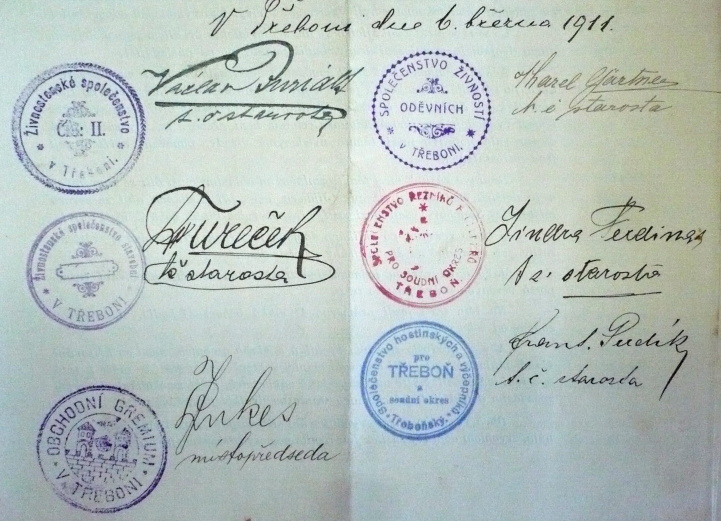 V Třeboni dne 6. března 1911.
Živnostenské společenstvo
Čís: II.
v Třeboni.
Václav
t. č. starosta
SPOLEČENSTVO ŽIVNOSTÍ
ODĚVNÍCH
V TŘEBONI.
Karel Gärtner
t. č. starosta
Živnostenské společenstvo
V TŘEBONI
Tureček
t č starosta
SPOLEČENSTVO ŘEZNÍKŮ
PRO SOUDNÍ OKRES
TŘEBOŇ
Jindra Ferdinand
t. č. starosta
Společenstvo hostinských a výčepníků
pro
TŘEBOŇ
a
soudní okres
Třeboňský.
Frant. Pudík
t. č. starosta
OBCHODNÍ GREMIUM
V TŘEBONI
místopředseda